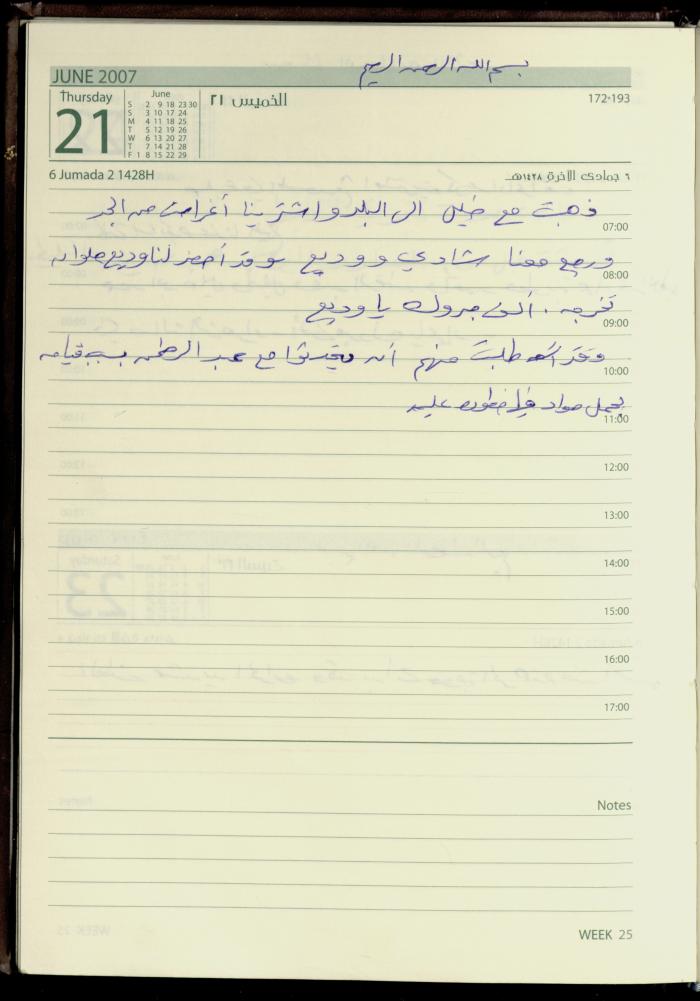 بسم الله الرحمن الرحيم
JUNE 2007
Thursday
21
June
S 2 9 16 23 30
S 3 10 17 24
M 4 11 18 25
T 5 12 19 26
W 6 13 20 27
T 7 14 21 28
F 1 8 15 22 29
الخميس ٢١
172-193
6 Jumada 2 1428H
٦ جمادى الآخرة ١٤٢٨هـ
ذهبت مع خليل الى البلد واشترينا أغراض من
07:00
ورجع معنا شادي ووديع وقد أحضر لنا وديع حلوان
08:00
تخرجه . ألف مبروك يا وديع
09:00
وقد طلبت منهم أن يتحدثوا مع عبد الرحمن بسبب قيامه
10:00
بحمل مواد
11:00
12:00
13:00
14:00
15:00
16:00
17:00
Notes
WEEK 25